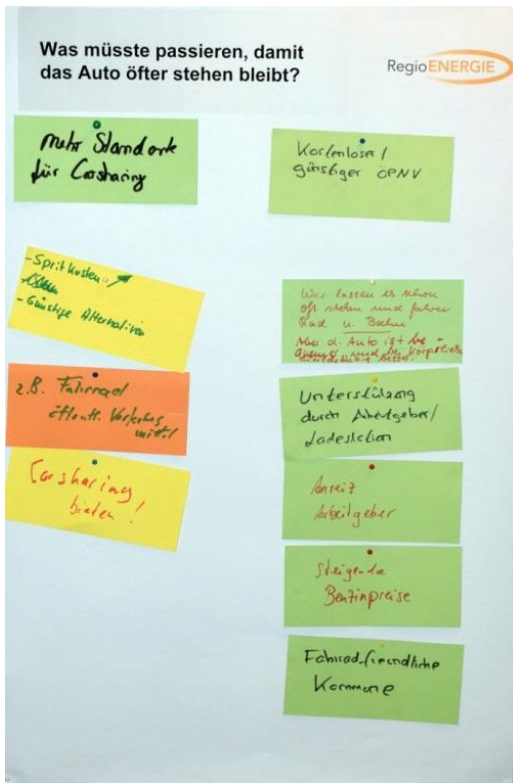 Was müsste passieren, damit
das Auto öfter stehen bleibt?
RegioENERGIE
mehr Standorte
für Carsharing
- Spritkosten
- Günstige Alternativen
z.B. Fahrrad
öffentl. Verkehrs
mittel
Carsharing
bieten!
Kostenloser /
günstiger ÖPNV
Wir lassen es schon
oft stehen und fahren
Rad u. Bahn
Aber d. Auto ist
und
Unterstützung
durch Arbeitgeber/
Ladestation
Anreiz
Arbeitgeber
Steigende
Benzinpreise
Fahrradfreundliche
Kommune